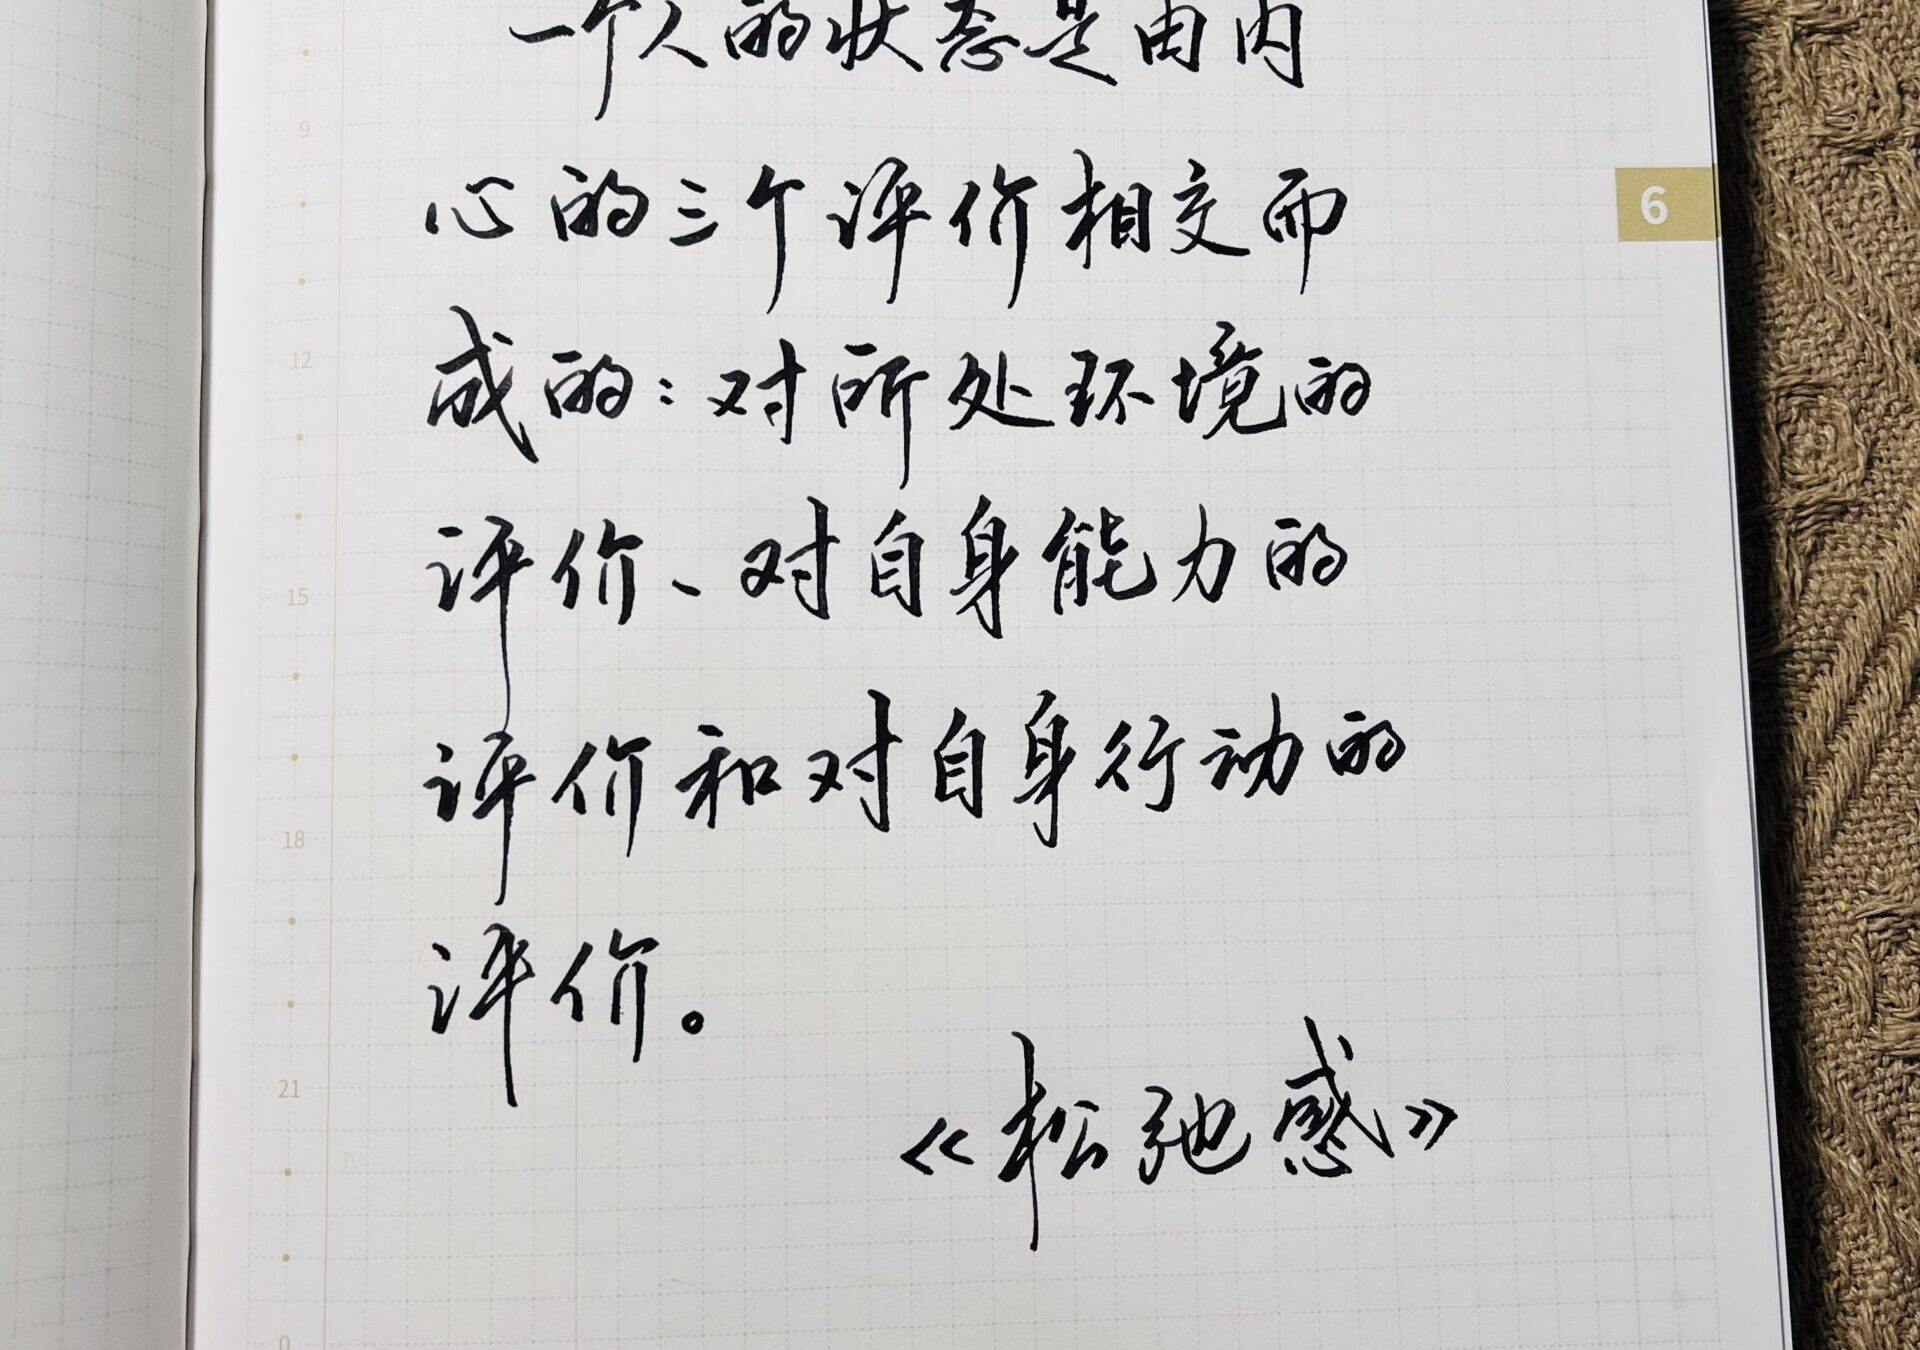 一个人的状态是由内
9
心的三个评价相交而
6
12
成的：对所处环境的
15
评价、对自身能力的
18
评价和对自身行动的
评价。
21
《松弛感》
0